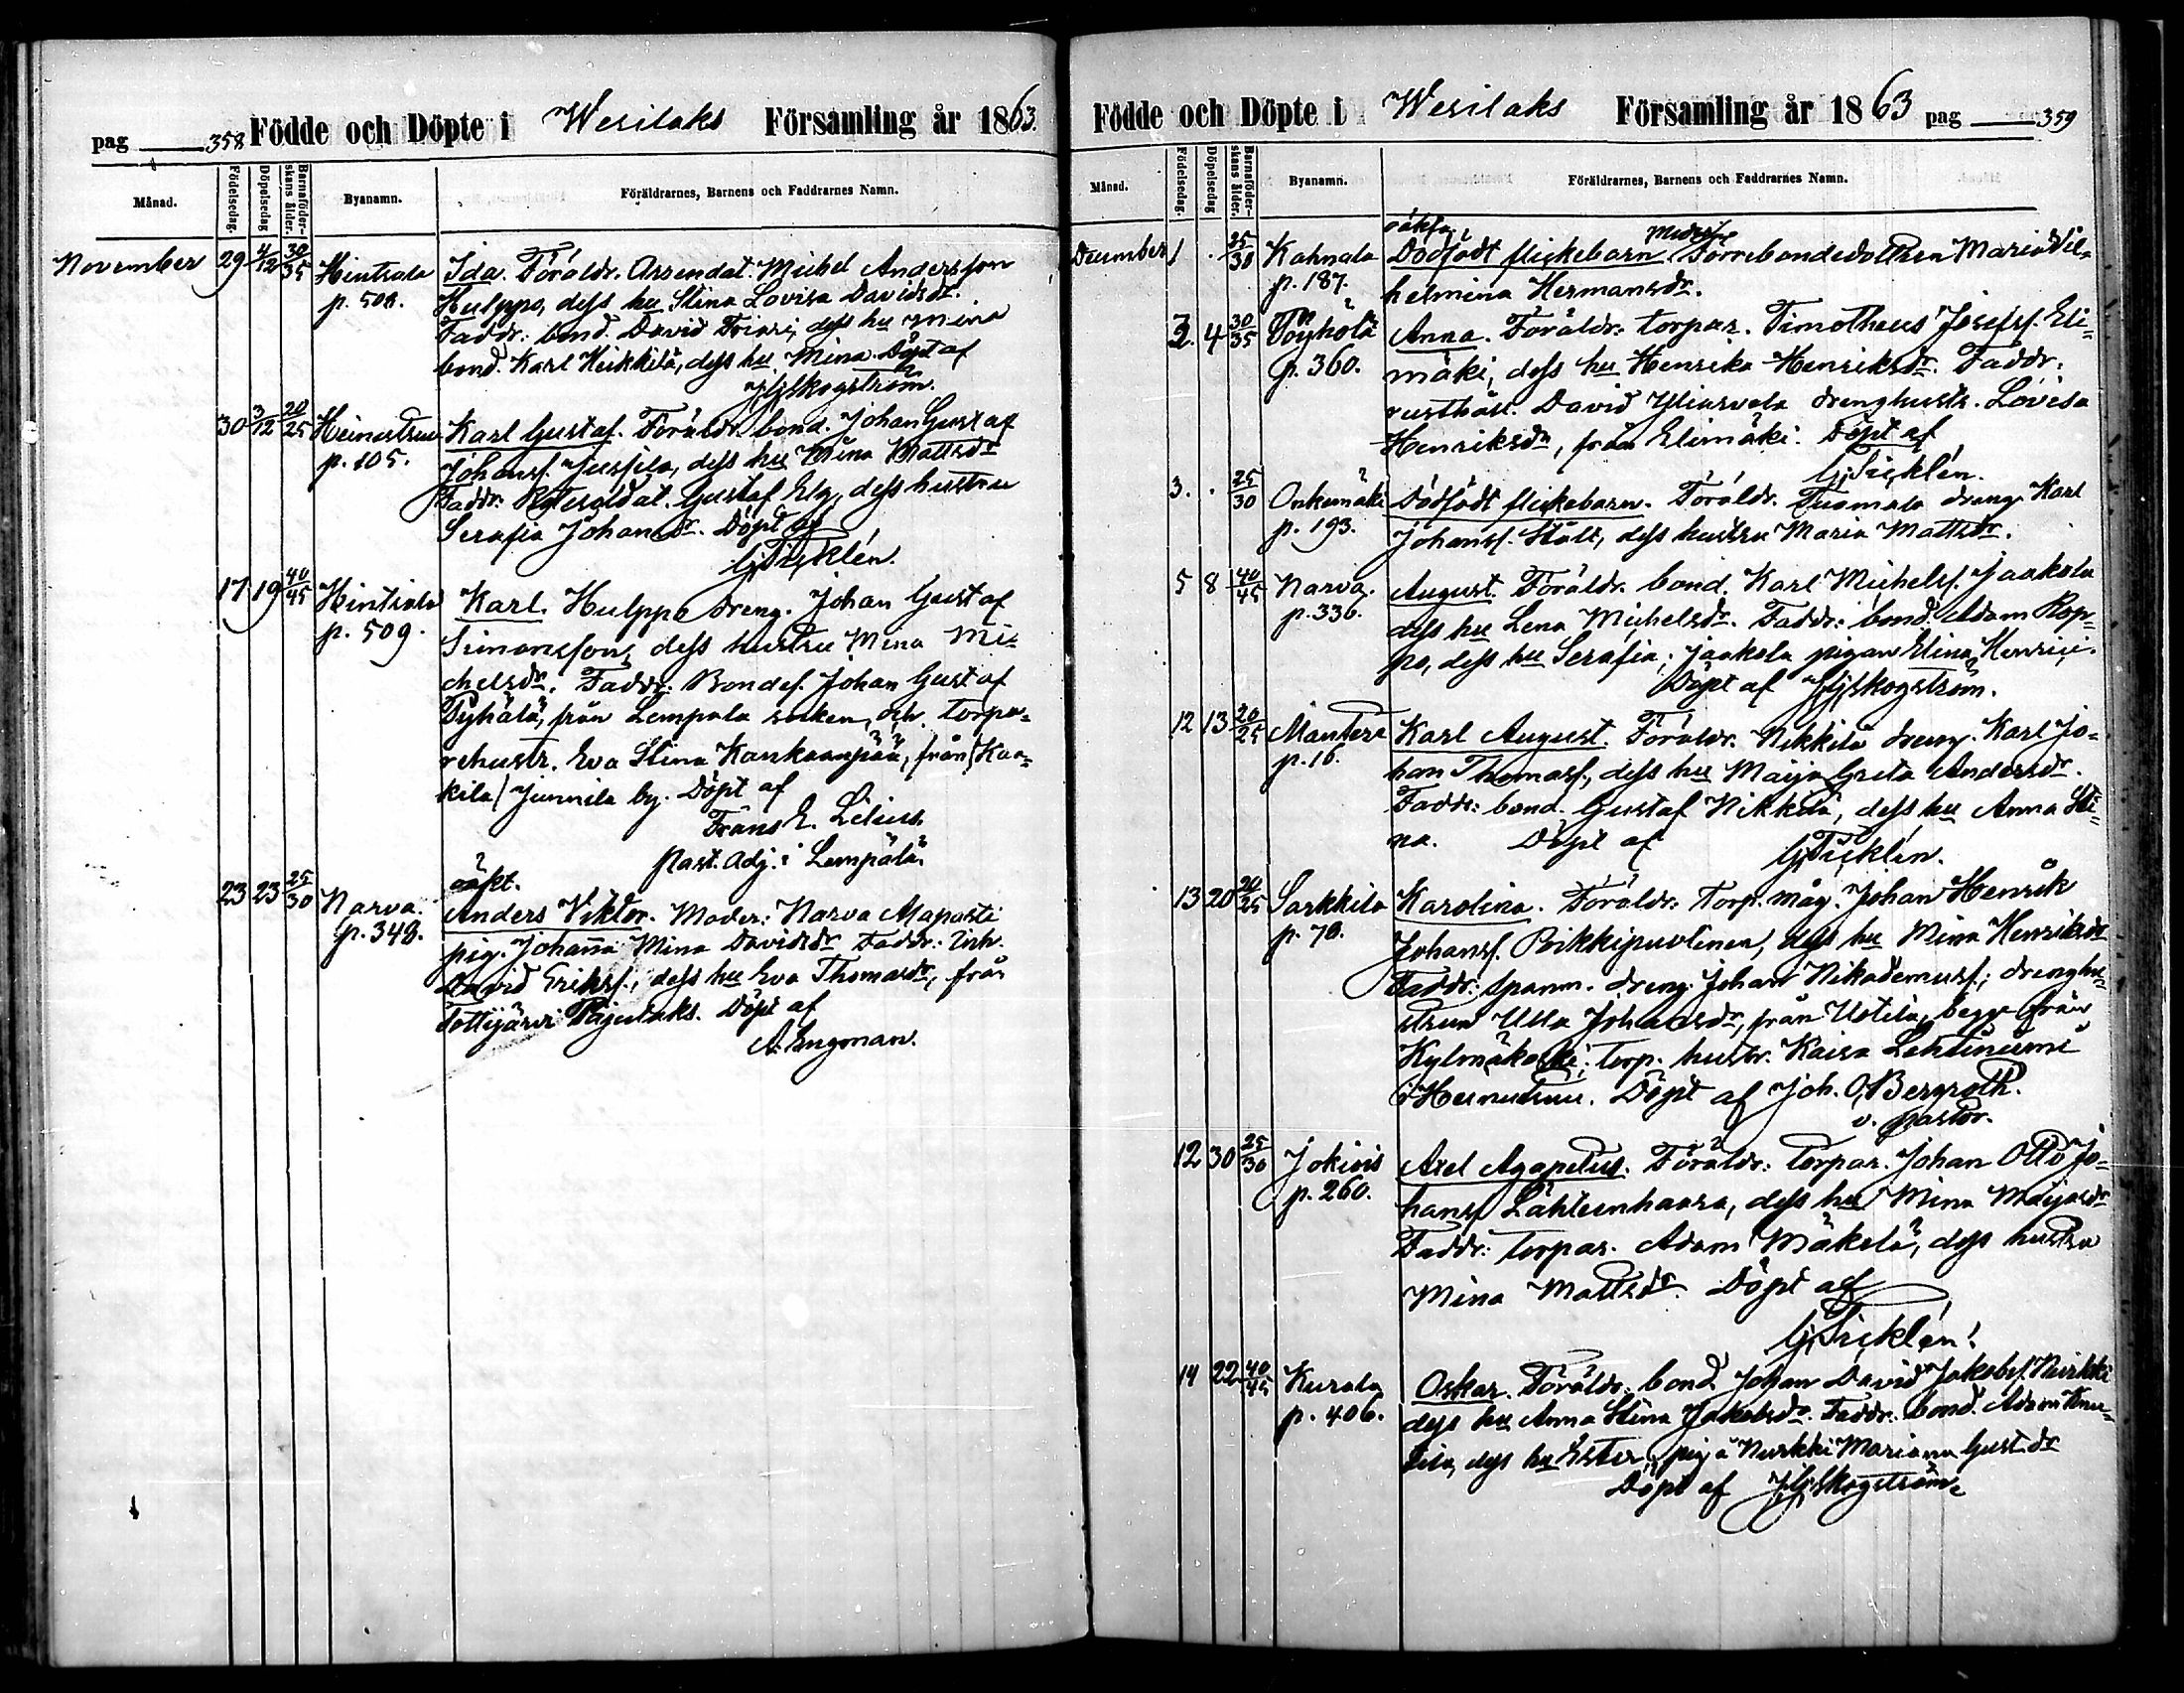 pag 358 Födde och Döpte i Wesilaks Församling år 1863.
Månad. Födelsedag. Döpelsedag Barnaföderskans ålder. Byanamn. Föräldrarnes, Barnens och Faddrarnes Namn.
November 29 4/12 30/35 Hintsala Ida. Föräldr. Arrendat. Michel Andersson
p. 509. Hulppo, dess hu Stina Lovisa Davidsdr.
Faddr. bond. David dess hu Mina
bond. Karl Heikkilä, dess hu Mina. Döpt af
JGSkogström.
30 3/12 20/25 Heinustrue Karl Gustaf. Föräldr. bond. Johan Gustaf
p. 105. Johanss. Jussila, dess hu Mina Mattsdr
Faddr. Rotesoldat. Gustaf Elg, dess hustru
Serafia Johansdr. Döpt af
GTicklén.
17 19 40/45 Hintsala Karl. Hulppo dreng. Johan Gustaf
p. 509. Simonsson, dess hustru Mina Mi-
chelsdr. Faddr. Bondes. Johan Gustaf
Pyhälä, från Lempala socken, och torpa-
rehustr. Eva Stina Kankaanpää, från (Kaa-
kila) Junnila by. Döpt af
Frans E. Lilius
Past. Adj. i Lempälä.
oäkt.
23 23 25/30 Narva. Anders Viktor. Moder: Narva Ajaposti
p. 348. pig. Johanna Mina Davidsdr Faddr. Inh.
David Erikss., dess hu Eva Thomasdr, från
Tottijärvi Pajulaks. Döpt af
A. Engman.
Födde och Döpte i Wesilaks Församling år 1863 pag 359
Månad. Födelsedag. Döpelsedag Barnaföderskans ålder. Byanamn. Föräldrarnes, Barnens och Faddrarnes Namn.
oäkta
December 1 . 25/30 Kahnala Dödfödt flickebarn. Moder: Torrebondedottren Maria Vil-
p. 187. helmina Hermansdr.
2. 4 30/35 Pöyhölä Anna. Föräldr. torpar. Timotheus Josefss. Eli-
p. 360. mäki, dess hu Henrika Henriksdr. Faddr.
rusthåll. David Yliarvela drenghustr. Lovisa
Henriksdr, från Elimäki. Döpt af
GTicklén.
3. . 25/30 Onkemäki Dödfödt flickebarn. Föräldr. Tuomala dreng Karl
p. 193. Johanss. Stålt, dess hustru Maria Mattsdr.
5 8 40/45 Narva. August. Föräldr. bond. Karl Michelss. Jaakola
p. 336. dess hu Lena Michelsdr. Faddr. bond. Adam Rop-
po, dess hu Serafia; Jaakola pigan Elina Henrici.
Döpt af JGSkogström.
12 13 20/25 Mantere Karl August. Föräldr. Nikkilä dreng. Karl Jo-
p. 16. han Thomass., dess hu Maija Greta Andersdr.
Faddr: bond. Gustaf Nikkilä, dess hu Anna Sti-
na. Döpt af GTicklén.
13 20 20/25 Sarkkila Karolina. Föräldr: Torp. måg. Johan Henrik
p. 70. Johanss. Pikkipuolinen, dess hu Mina Henriksdr
Faddr: Spanm. dreng. Johan Nikodemuss; drenghu-
strun Ulla Johansdr, från Uotila, begge från
Kylmäkoski; torp. hustr. Kaisa Lehtiniemi
i Heinustrue. Döpt af Joh. O. Bergroth.
v. pastor.
12 30 25/30 Jokiois Axel Agapetus. Föräldr: torpar. Johan Otto Jo-
p. 260. hanss Lähteenhaara, dess hu Mina Maijasdr
Faddr: torpar. Adam Mäkelä, dess hustru
Mina Mattsdr. Döpt af
GTicklén.
14 22 40/45 Kurala Oskar. Föräldr. bond. Johan David Jakobss. Nirkki
p. 406. dess hu Anna Stina Jakobsdr. Faddr. bond. Adam
dess hu Ester; pig. å Nurkki Mariana Gust.dr
Döpt af JGSkogström.